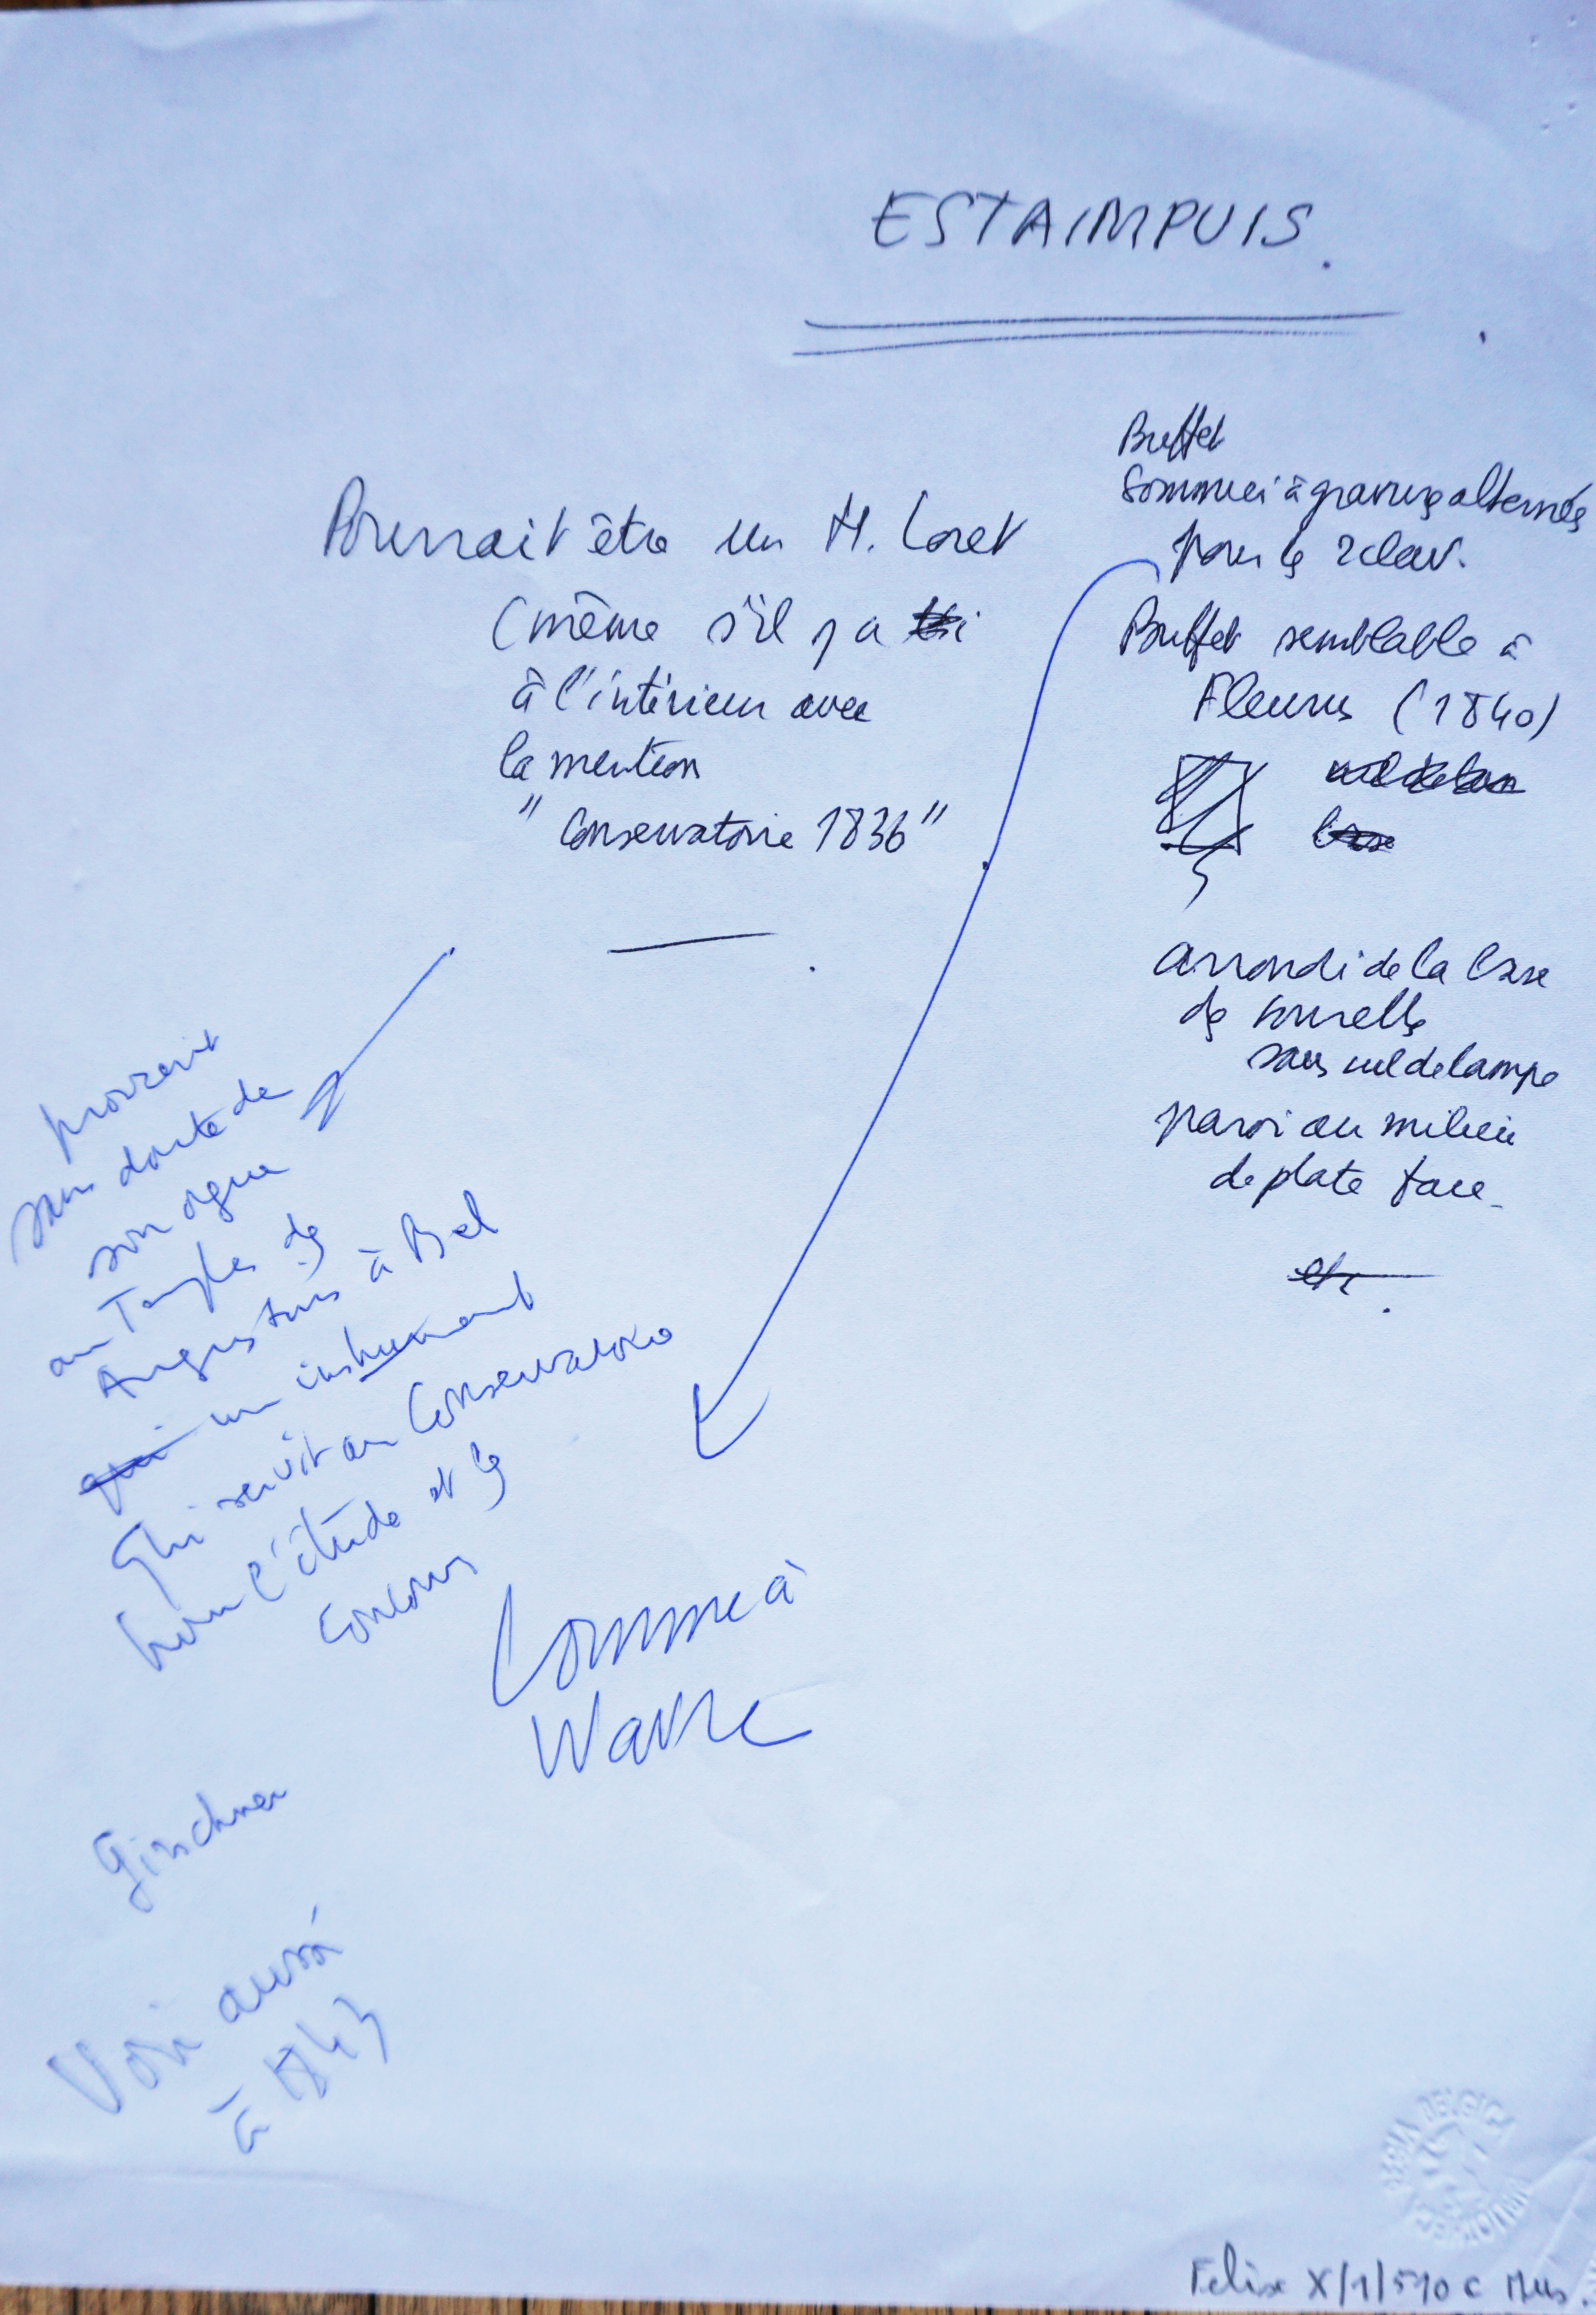 ESTAIMPUIS.
Pourrait être un H. Loret
(même s'il y a
à l'intérieur avec
la mention
"Conservatoire 1836"
Buffet
Sommier à gravures alternées
pour les 2 clav.
Buffet semblable à
Fleurus (1840)
cul de lam
base
arrondi de la base
des tourelles
sans cul de lampe
paroi au milieu
de plate face
etc.
provient
sans doute de
son orgue
au Temple des
Augustins à Bxl
qui un instrument
qui servit au Conservatoire
pour l'étude et les
concours
Comme à
Wavre
Girschner
Voir aussi
à 1843
REGIA BELGICA
Felix X/1/510 c Mus.